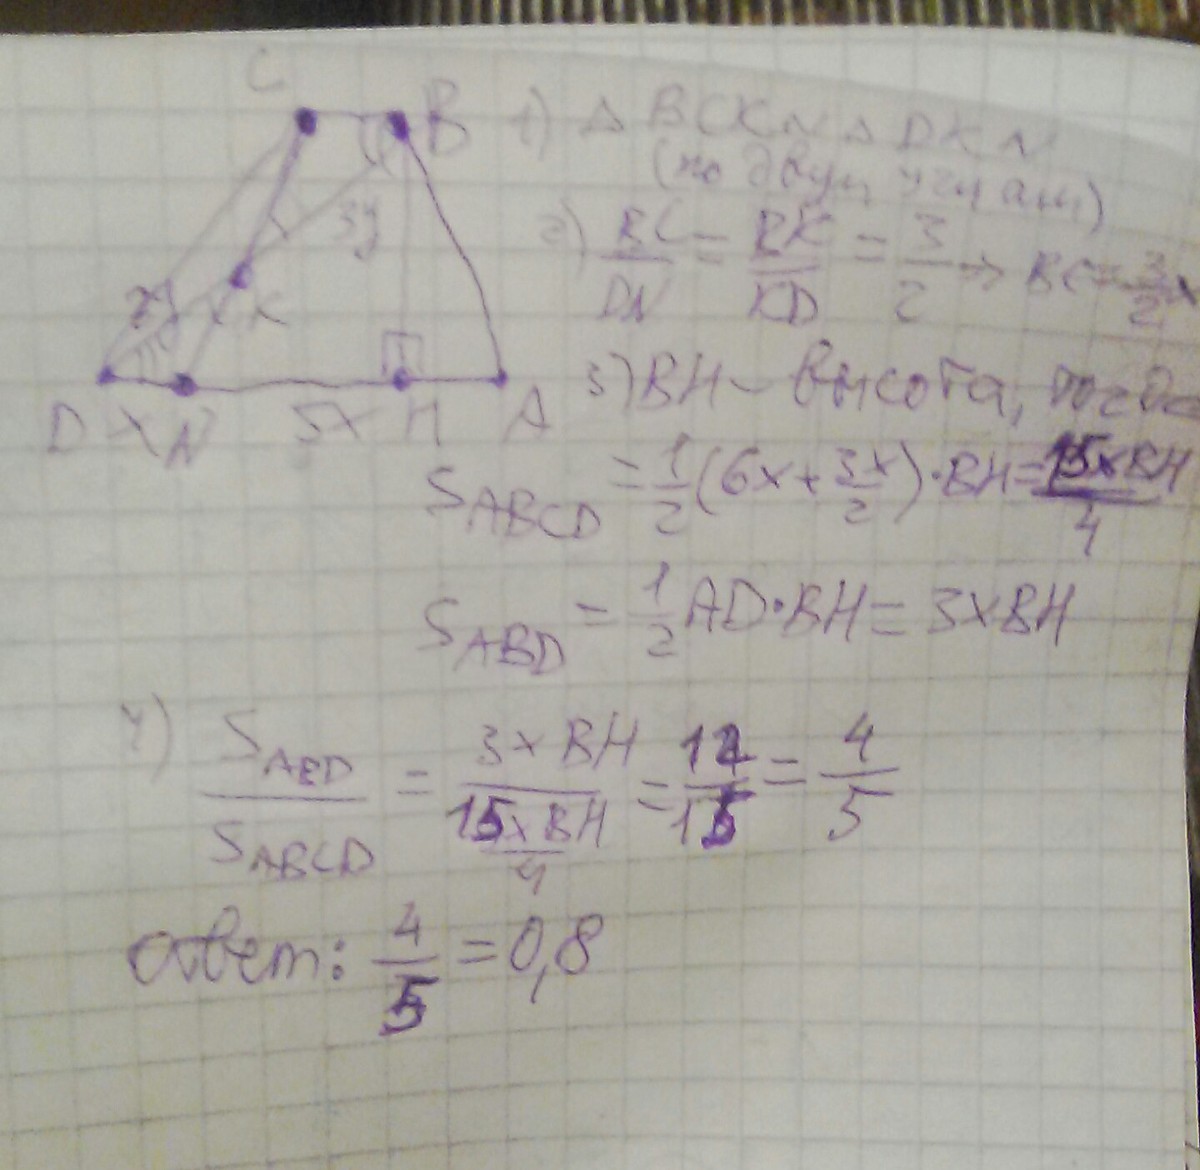 C B
3y
2y K
D x N 5x H A
1) Δ BCK ~ Δ DKN
(по двум углам)
2) BC/DN = BK/KD = 3/2 → BC = 3/2 x
3) BH – высота, тогда
S_ABCD = 1/2 (6x + 3x/2) · BH = 15xBH/4
S_ABD = 1/2 AD · BH = 3xBH
4) S_ABD/S_ABCD = 3xBH/(15xBH/4) = 12/15 = 4/5
ответ: 4/5 = 0,8